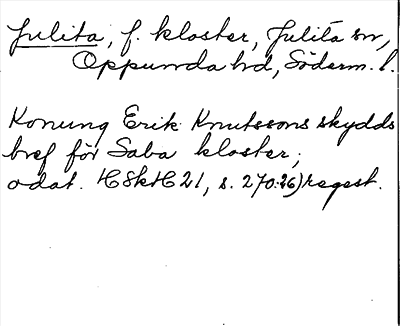 Julita, f. kloster, Julita sn,
Oppunda hd, Söderm. l.
Konung Erik Knutssons skydds
bref för Saba kloster;
odat. HSkH 21, s. 270:26) regest.